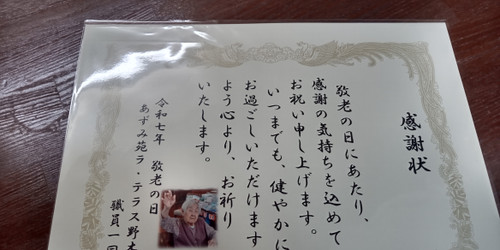 感謝状
敬老の日にあたり、
感謝の気持ちを込めて
お祝い申し上げます。
いつまでも、健やかに
お過ごしいただけます
よう心より、お祈り
いたします。
令和七年　敬老の日
あずみ苑ラ・テラス野木
職員一同